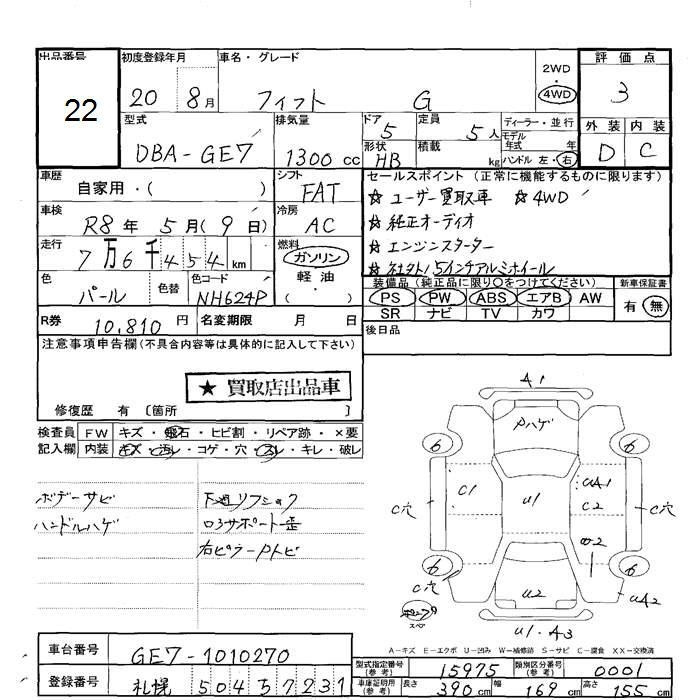 出品番号 22
初度登録年月 20 8月
車名・グレード フィット G
2WD
4WD
評価点 3
外装 内装
D C
型式 DBA-GE7
排気量 1300cc
ドア 5
形状 HB
定員 5人
積載 kg
ディーラー・並行
モデル年式 年
ハンドル 左・右
車歴 自家用・( )
シフト FAT
車検 R8年 5月(9日)
冷房 AC
走行 7万6千454km
燃料 ガソリン
軽油
( )
色 パール
色替
色コード NH624P
R券 10,810円
名変期限 月 日
セールスポイント(正常に機能するものに限ります)
☆ユーザー買取車 ☆4WD
☆純正オーディオ
☆エンジンスターター
☆社タト15インチアルミホイール
装備品(純正品に限り○をつけてください)
PS PW ABS エアB AW
SR ナビ TV カワ
新車保証書
有 無
後日品
注意事項申告欄(不具合内容等は具体的に記入して下さい)
★買取店出品車
修復歴 有〔箇所 〕
検査員記入欄
FW キズ・飛石・ヒビ割・リペア跡・×要
内装 キズ・汚レ・コゲ・穴・スレ・キレ・破レ
ボデーサビ
ハンドルハゲ
下廻リフショク
ロ3サポート歪
右ピラーPトビ
A1
Pハゲ
6 6
C1 U1 UA1
C2
C穴 C穴
6 6
C穴
U2
UA2
U1・A3
スペア
A-キズ E-エクボ U-凹み W-補修跡 S-サビ C-腐食 XX-交換済
車台番号 GE7-1010270
登録番号 札幌 504 5 7231
型式指定番号(参考) 15975
類別区分番号(参考) 0001
車庫証明用(参考) 長さ 390cm 幅 169cm 高さ 155cm